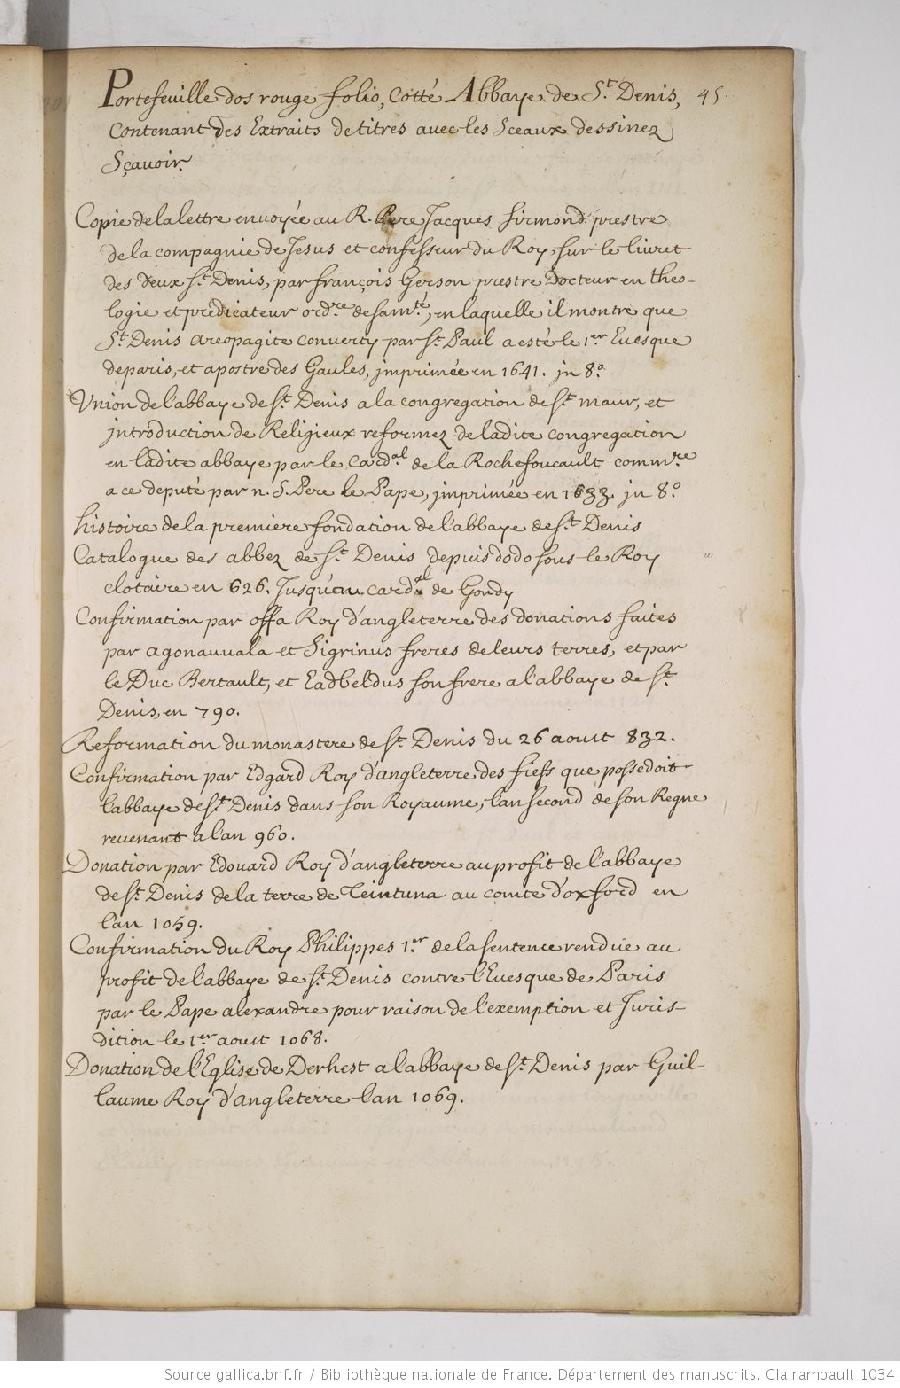 Portefeuille dos rouge folio, Cotté Abbaye de St. Denis, 45
Contenant des Extraits de titres avec les Sceaux dessinez
Sçavoir
Copie de la lettre envoyée au R. Pere Jacques Sirmond prestre
de la compagnie de Jesus et confesseur du Roy, sur le livret
des deux St. Denis, par françois Gerson prestre Docteur en theo-
logie et predicateur ordre de samté, en laquelle il montre que
St. Denis areopagite converty par St. Paul a esté le 1er Evesque
de paris, et apostre des Gaules, imprimée en 1641. in 8°.
Union de l'abbaye de St. Denis a la congregation de St. maur, et
introduction de Religieux reformez de ladite congregation
en ladite abbaye par le Cardal. de la Rochefoucault commre
a ce deputé par n. S. Pere le Pape, imprimée en 1633. in 8°
histoire de la premiere fondation de l'abbaye de St. Denis
Catalogue des abbez de St. Denis depuis dodo sous le Roy
clotaire en 626. Jusqu'au Cardal de Gondy
Confirmation par offa Roy d'angleterre des donations faites
par agonauvala et Sigrinus freres de leurs terres, et par
le Duc Bertault, et Eadbeldus son frere a l'abbaye de St.
Denis, en 790.
Reformation du monastere de St. Denis du 26 aoust 832.
Confirmation par Edgard Roy d'angleterre des fiefs que possedoit
l'abbaye de St. Denis dans son Royaume, l'an second de son Regne
revenant a l'an 960.
Donation par Edouard Roy d'angleterre au profit de l'abbaye
de St. Denis de la terre de Teintuna au comté d'oxford en
l'an 1059.
Confirmation du Roy Philippes 1er de la sentence rendue au
profit de l'abbaye de St. Denis contre l'Evesque de Paris
par le Pape alexandre pour raison de l'exemption et Juris-
dition le 1er aoust 1068.
Donation de l'Eglise de Derhest a l'abbaye de St. Denis par Guil-
laume Roy d'angleterre l'an 1069.
Source gallica.bnf.fr / Bibliothèque nationale de France. Département des manuscrits. Clairambault 1034